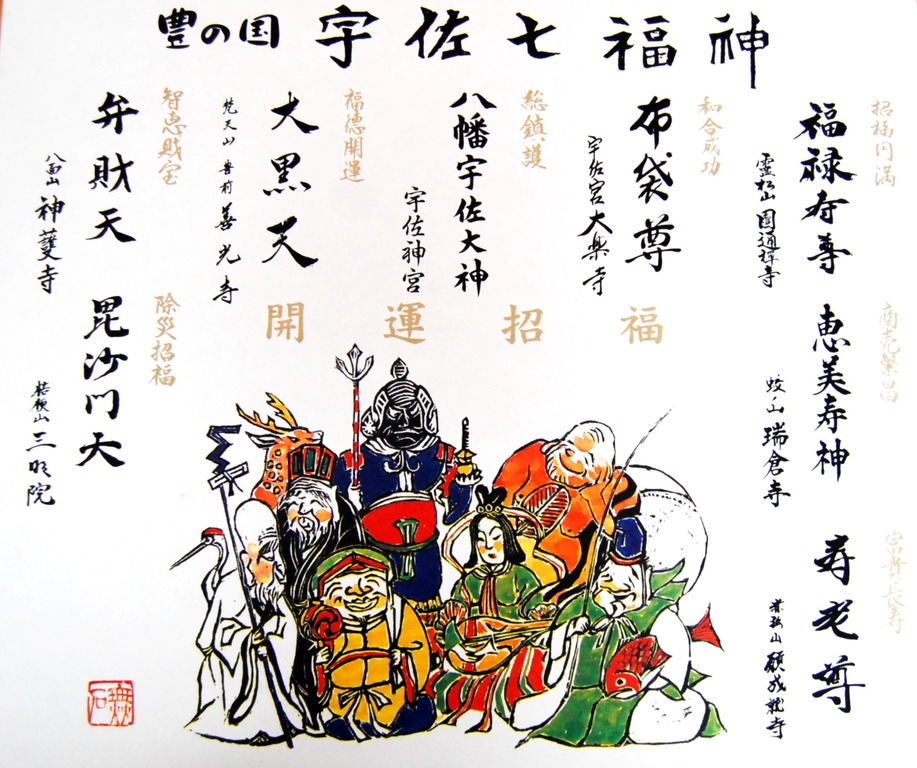 豊の国 宇佐七福神
招福円満
福禄寿尊
靈松山 圓通禅寺
商売繁昌
恵美寿神
瑞倉寺
富貴長寿
寿老尊
願成就寺
和合成功
布袋尊
宇佐宮 大楽寺
総鎮護
八幡宇佐大神
宇佐神宮
福徳開運
大黒天
梵天山 善光寺
智恵財宝
弁財天
八面山 神護寺
除災招福
毘沙門天
桔梗山 三明院
開運招福